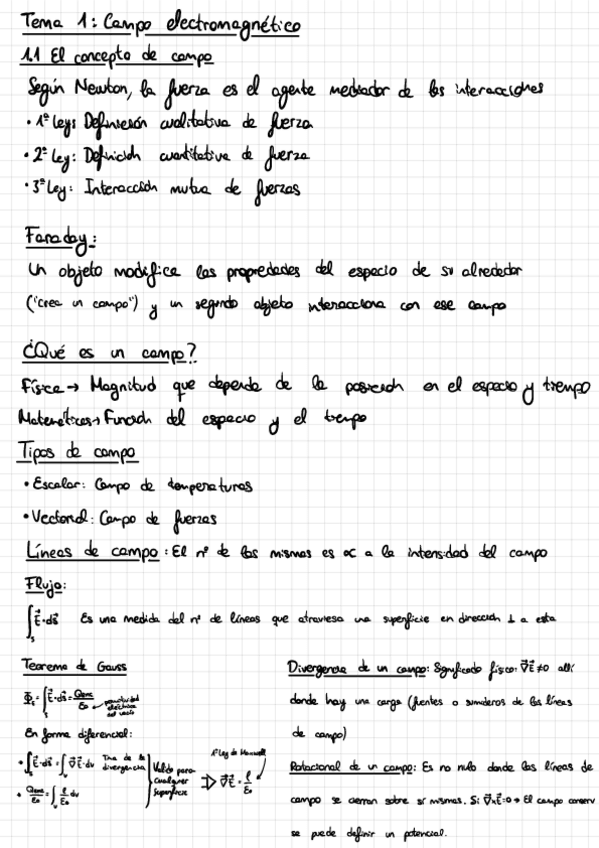 Tema 1: Campo electromagnético
1.1 El concepto de campo
Según Newton, la fuerza es el agente mediador de las interacciones
• 1ª Ley: Definición cualitativa de fuerza
• 2ª Ley: Definición cuantitativa de fuerza
• 3ª Ley: Interacción mutua de fuerzas
Faraday:
Un objeto modifica las propiedades del espacio de su alrededor
("crea un campo") y un segundo objeto interacciona con ese campo
¿Qué es un campo?
Física → Magnitud que depende de la posición en el espacio y tiempo
Matemáticas → Función del espacio y el tiempo
Tipos de campo
• Escalar: Campo de temperaturas
• Vectorial: Campo de fuerzas
Líneas de campo: El nº de las mismas es ∝ a la intensidad del campo
Flujo:
∫ₛ E⃗·ds⃗ Es una medida del nº de líneas que atraviesa una superficie en dirección ⊥ a esta
Teorema de Gauss
Φₛ = ∫ₛ E⃗·ds⃗ = Qenc/ε₀ → permitividad eléctrica del vacío
En forma diferencial:
• ∫ₛ E⃗·ds⃗ = ∫ᵥ ∇⃗E⃗·dv Tma de la divergencia
• Qenc/ε₀ = ∫ᵥ ρ/ε₀ dv
Valido para cualquier superficie
⇒ ∇⃗E⃗ = ρ/ε₀
1ª Ley de Maxwell
Divergencia de un campo: Significado físico: ∇⃗E⃗ ≠ 0 allí
donde hay una carga (fuentes o sumideros de las líneas
de campo)
Rotacional de un campo: Es no nulo donde las líneas de
campo se cierran sobre sí mismas. Si ∇⃗xE⃗=0 → El campo conserv
se puede definir un potencial.